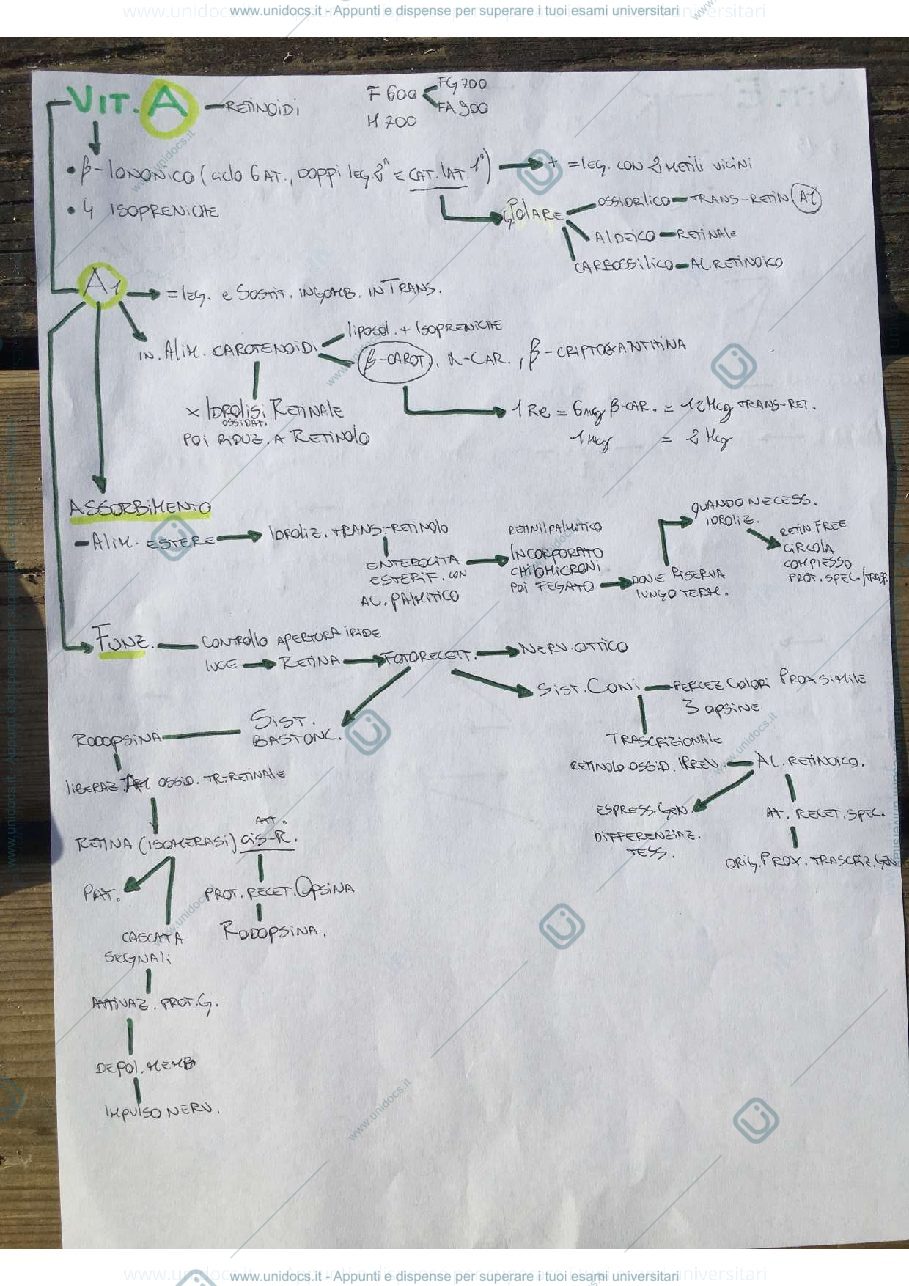 www.unidocs.it - Appunti e dispense per superare i tuoi esami universitari
VIT. A — RETINOIDI
F 600
FG 700
FA 900
M 700
• β-IONONICO (CICLO 6 AT., DOPPI LEG. 2° E CAT. LAT 1°) = LEG. CON 2 METILI VICINI
• 4 ISOPRENICHE
POLARE
OSSIDRILICO — TRANS-RETIN (A1)
ALDEICO — RETINALE
CARBOSSILICO — AC RETINOICO
A1
= LEG. E SOSTIT. INGOMB. IN TRANS.
IN ALIM. CAROTENOIDI
LIPOSOL. + ISOPRENICHE
β-CAROT, α-CAR., β-CRIPTOXANTINA
X IDROLISI RETINALE
OSSIDAT.
POI RIDUZ. A RETINOLO
1 RE = 6 mcg β-CAR. = 12 Mcg TRANS-RET.
1 Mcg = 2 Mcg
ASSORBIMENTO
- ALIM. ESTERE
IDROLIZ. TRANS-RETINOLO
ENTEROCITA
ESTERIF. CON
AC. PALMITICO
RETINILPALMITICO
INCORPORATO
CHILOMICRONI
POI FEGATO
DOVE RISERVA
LUNGO TERM.
QUANDO NECESS.
IDROLIZ.
RETIN FREE
CIRCOLA
COMPLESSO
PROT. SPEC/TRAS.
FUNZ.
CONTROLLO APERTURA IRIDE
LUCE
RETINA
FOTORECETT.
NERV. OTTICO
SIST. CONI — PERCEZ COLORI PROX SIMILE
3 OPSINE
SIST.
BASTONC.
RODOPSINA
TRASCRIZIONALE
RETINOLO OSSID. IRREV. — AC. RETINOICO.
LIBERAZ. OSSID. TR-RETINALE
ESPRESS. GEN
DIFFERENZIAZ.
TESS.
AT. RECET. SPEC.
ORIG. PROX. TRASCRIZ. GEN
RETINA (ISOMERASI) CIS-R.
ATT.
PAT.
PROT. RECET. OPSINA
RODOPSINA.
CASCATA
SEGNALI
ATTIVAZ. PROT. G.
DEPOL. MEMB
IMPULSO NERV.
www.unidocs.it - Appunti e dispense per superare i tuoi esami universitari